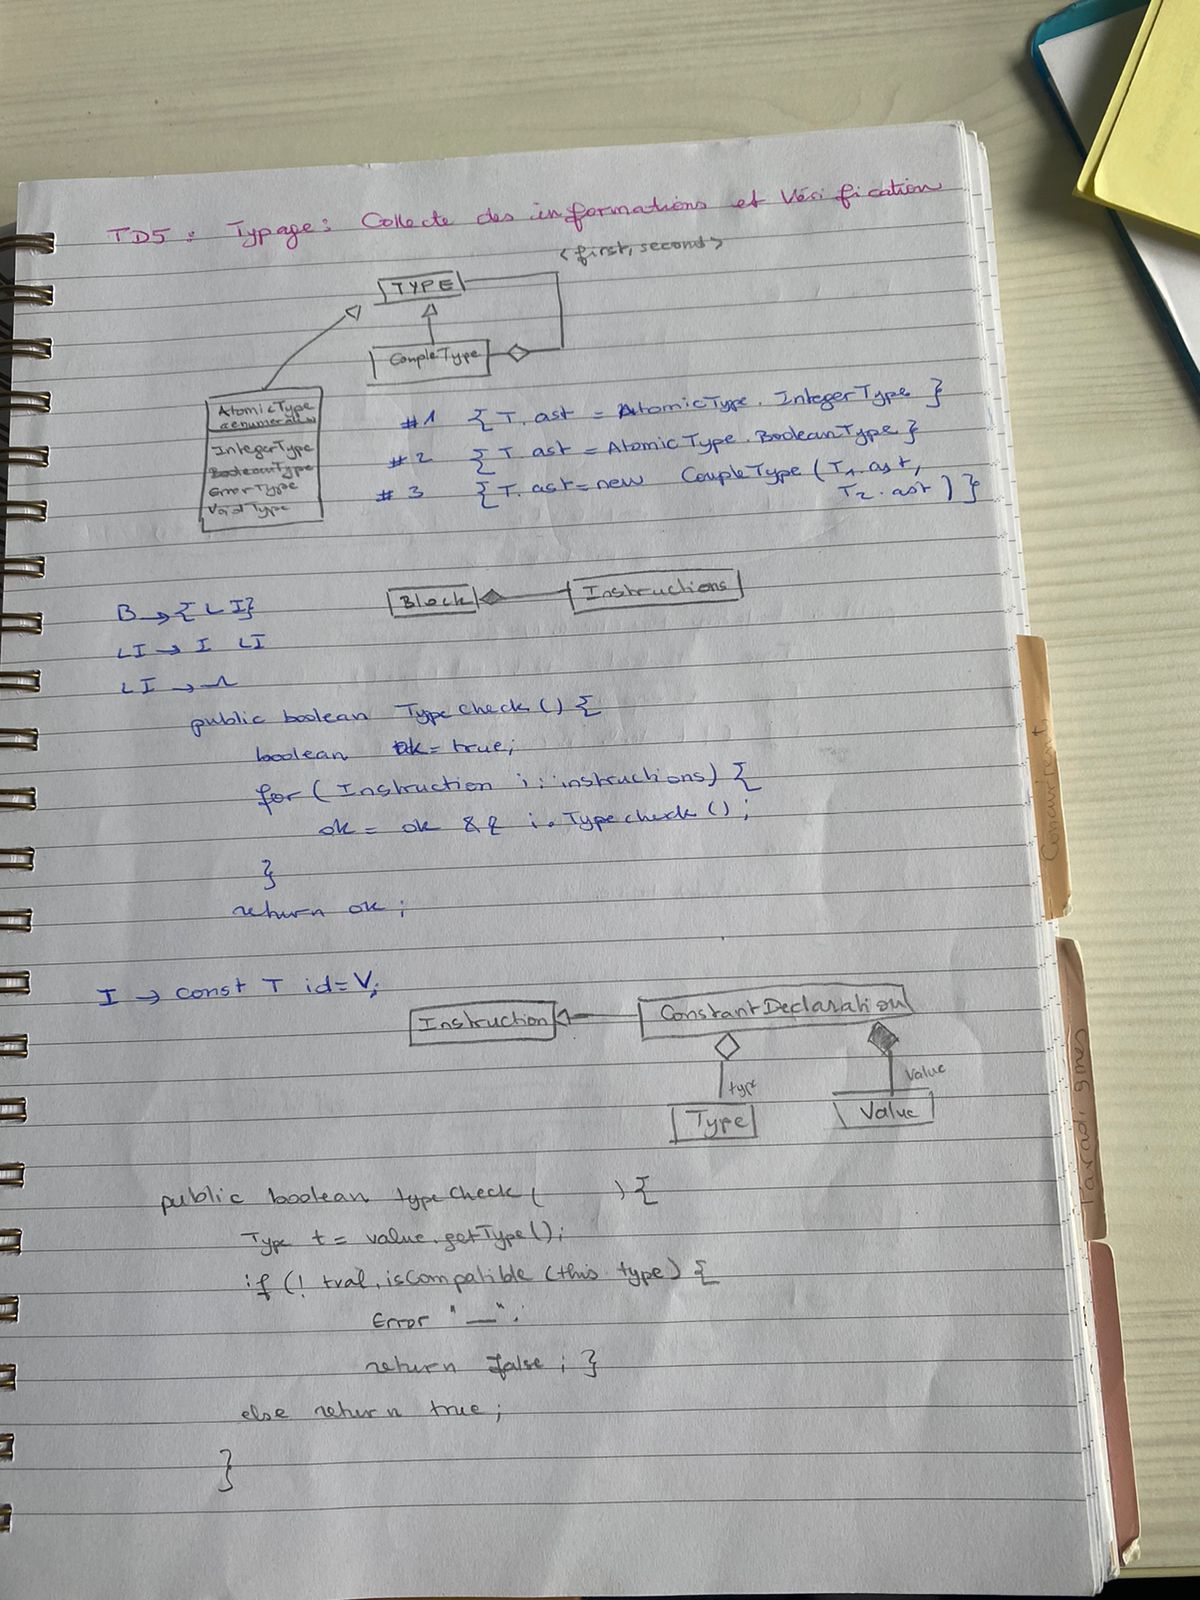 TD5 : Typage : Collecte des informations et Vérification
<first, second>
TYPE
CoupleType
AtomicType
IntegerType
BooleanType
ErrorType
VoidType
#1 {T.ast = AtomicType.IntegerType }
#2 {T.ast = AtomicType.BooleanType}
#3 {T.ast=new CoupleType (T1.ast,
T2.ast ) }
B → {LI}
Block
Instructions
LI → I LI
LI → Λ
public boolean Typecheck () {
boolean ok = true;
for ( Instruction i : instructions) {
ok = ok && i.Typecheck () ;
}
return ok ;
I → const T id = V;
Instruction
ConstantDeclaration
type
value
Type
Value
public boolean typeCheck ( ) {
Type t = value.getType();
if (! tval.isCompatible (this type) {
Error "—";
return false ; }
else return true;
}
Concurrent
Paradigmes